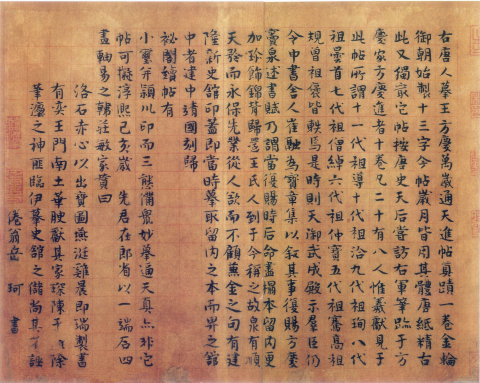 右唐人摹王方慶萬歲通天進帖真蹟一卷金輪
御朝始製十三字今帖歲月皆用其體唐紙精古
此又獨最它帖按唐史天后嘗訪右軍筆蹟于方
慶家方慶進者十卷凡二十有八人惟羲獻見于
此帖所謂十一代祖導十代祖洽九代祖珣八代
祖曇首七代祖僧綽六代祖仲寶五代祖騫高祖
規曾祖褒皆軼焉是時則天御武成殿示羣臣仍
令中書舍人崔融為寶章集以敘其事復賜方慶
竇臮述書賦乃謂當復賜時后命盡榻本留內更
加珍飾錦背歸還王氏人到于今稱之故臮有順
天矜而永保先業從人欲而不顧兼金之句有建
隆新史館印蓋即當時摹取留內之本而畀之館
中者建中靖國刻歸
祕閣續帖有
小璽并潁川印而三態備眾妙摹逼天真亦非它
帖可擬淳熈己亥歲 先君在郎省以一端石四
畫軸易之轑莊敏家贊曰
洛石赤心以出寶圖燕涎雞晨即瑞製書
有奕王門南土華腴獻其家琛陳于除
華之神匪臨伊摹史館之儲尚其誣
倦翁岳珂書